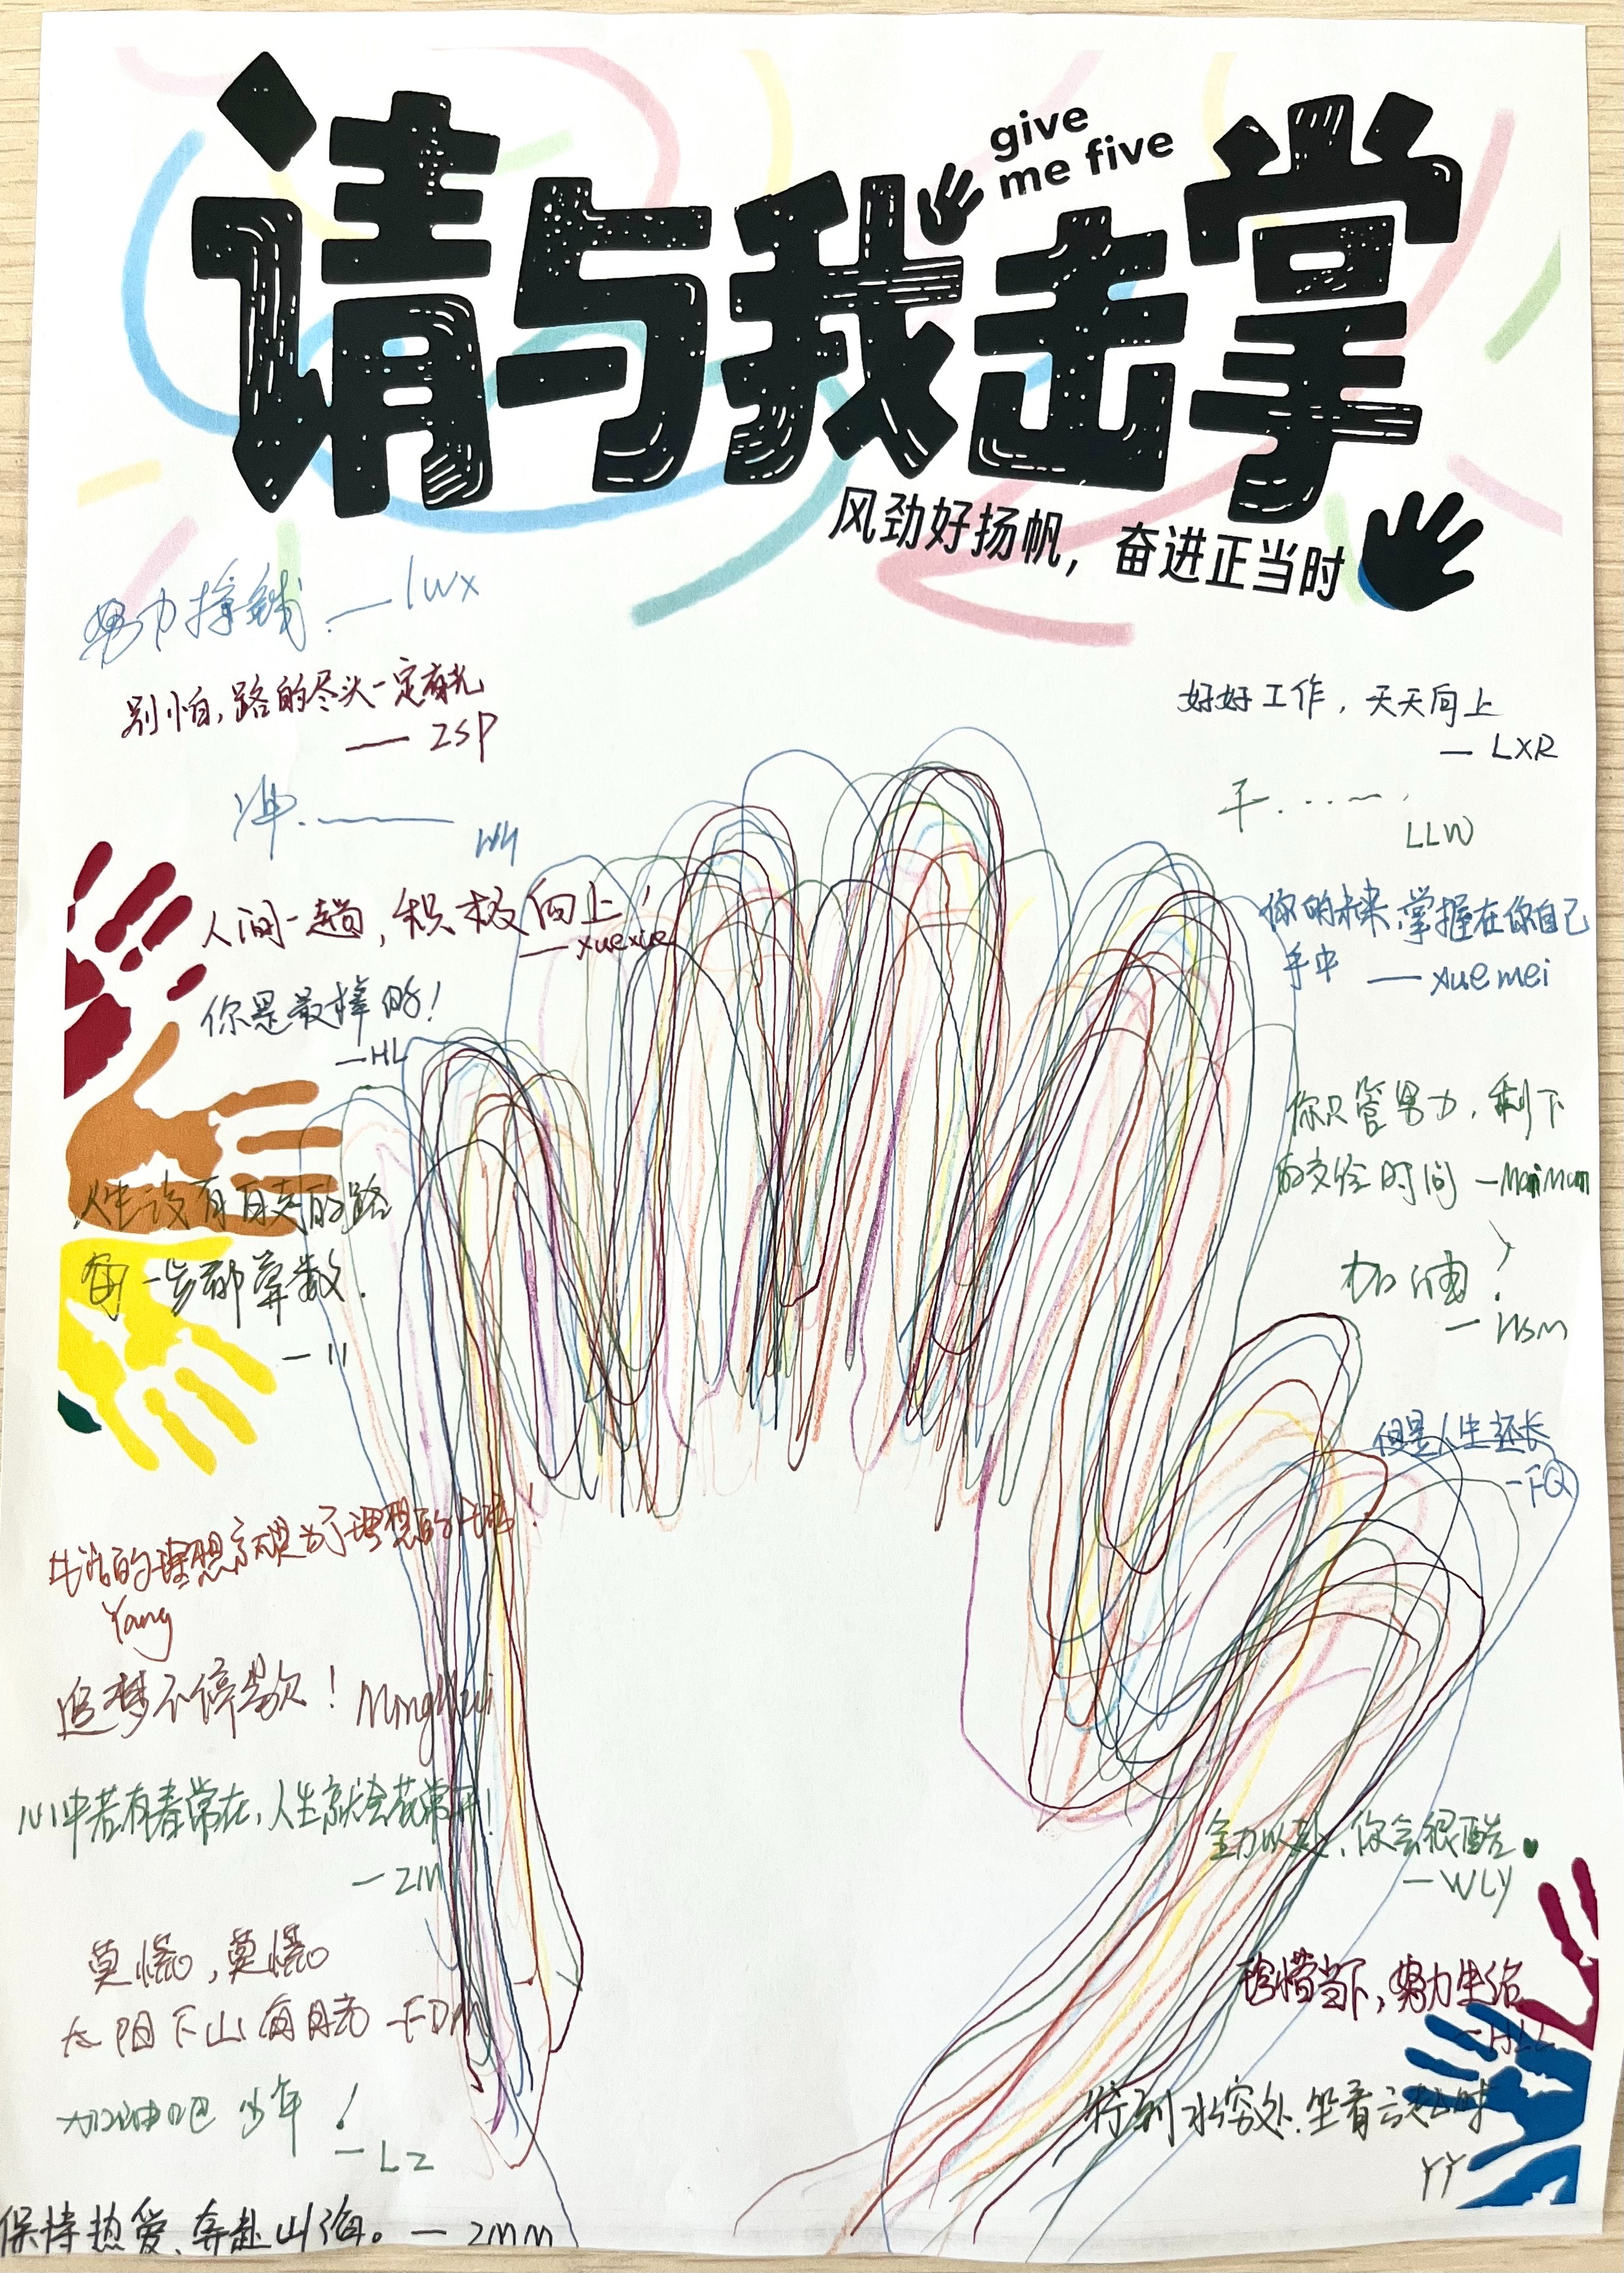 give
me five
请与我击掌
风劲好扬帆，奋进正当时
努力挣钱.——lwx
别怕，路的尽头一定有光
—— ZSP
冲.———
WH
人间一趟，积极向上！
—xuexue
你是最棒的！
—HL
人生没有白走的路
每一步都算数.
— 11
生活的理想就是为了理想的生活！
Yang
追梦不停歇！
心中若有春常在，人生就会花常开！
— ZM
莫慌，莫慌
太阳下山有月亮 —FDM
加油吧 少年！
— LZ
保持热爱、奔赴山海。— ZMM
好好工作，天天向上
— LXR
干......~
LLW
你的未来，掌握在你自己
手中 —— xuemei
你只管努力，剩下
的交给时间 —ManMan
加油！
但是人生还长
—FQ
全力以赴，你会很酷
— WLY
珍惜当下，努力生活
—HLL
行到水穷处，坐看云起时
YY